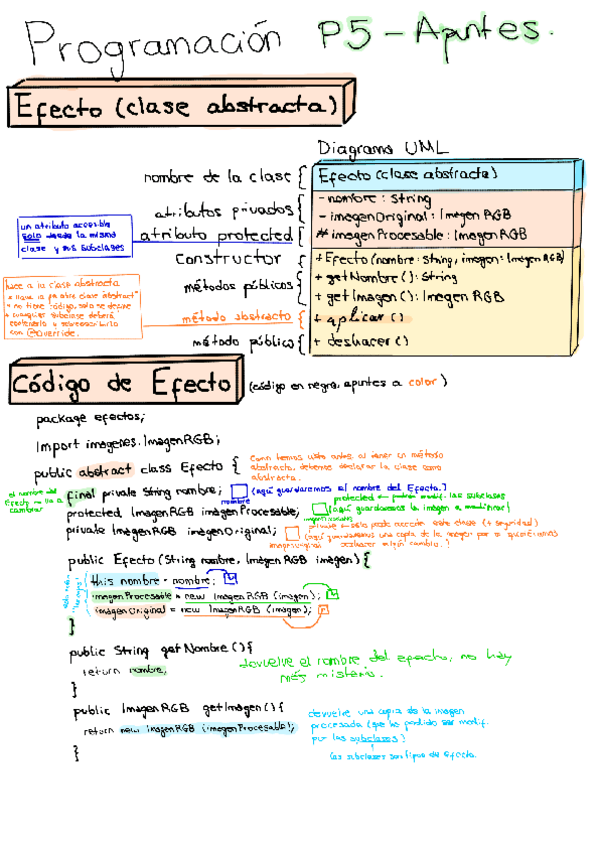 Programación P5 - Apuntes.
Efecto (clase abstracta)
Diagrama UML
nombre de la clase { Efecto (clase abstracta)
atributos privados { - nombre: String
- imagenOriginal: Imagen RGB
un atributo accesible
solo desde la misma
clase y sus subclases
atributo protected { # imagenProcesable: Imagen RGB
constructor { + Efecto (nombre: String, imagen: Imagen RGB)
métodos públicos { + getNombre(): String
+ getImagen(): Imagen RGB
hace a la clase abstracta
* no tiene código, solo se declara
* cualquier subclase deberá
con @Override.
método abstracto { + aplicar()
método público { + deshacer()
Código de Efecto (código en negro, apuntes a color)
package efectos;
import imagenes.ImagenRGB;
public abstract class Efecto {
Como hemos visto antes al tener un método
abstracto, debemos declarar la clase como
abstracta.
el nombre del
Efecto no va a
cambiar
final private String nombre; (aquí guardaremos el nombre del Efecto.)
nombre
protected → podrán modif. las subclases
protected ImagenRGB imagenProcesable; (aquí guardaremos la imagen a modificar)
private → solo puede acceder esta clase (+ seguridad)
private ImagenRGB imagenOriginal; (aquí guardaremos una copia de la imagen por si quisiéramos
imagenOriginal deshacer algún cambio.)
public Efecto (String nombre, ImagenRGB imagen) {
this nombre = nombre;
imagenProcesable = new ImagenRGB (imagen);
imagenOriginal = new ImagenRGB (imagen);
}
public String getNombre () {
return nombre;
devuelve el nombre del efecto, no hay
más misterio.
}
public ImagenRGB getImagen () {
return new ImagenRGB (imagenProcesable);
devuelve una copia de la imagen
procesada (que ha podido ser modif.
por las subclases)
las subclases son tipos de efecto.
}